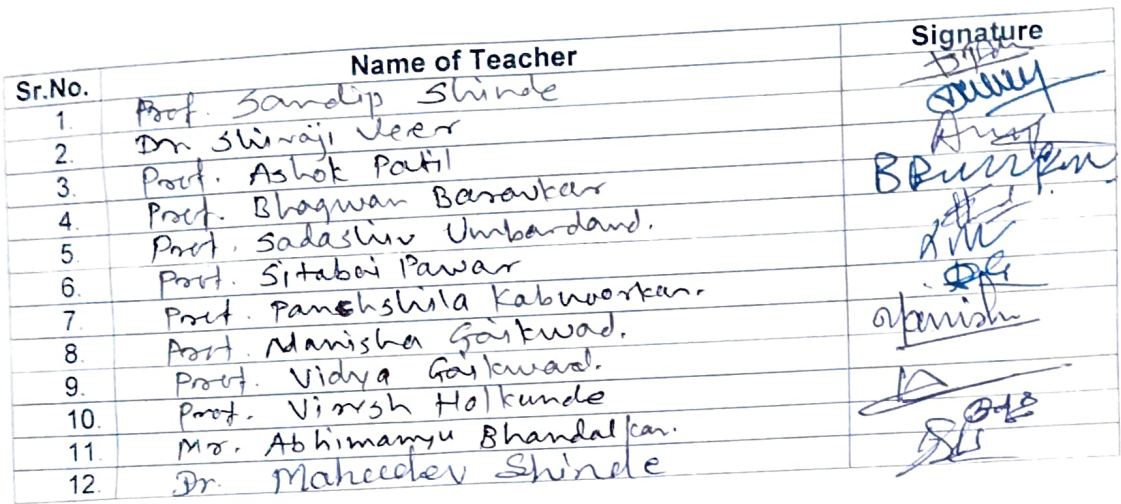 Sr.No. Name of Teacher Signature
1. Prof. Sandip Shinde
2. Dr. Shivaji Veer
3. Prof. Ashok Patil
4. Prof. Bhagwan Baravkar
5. Prof. Sadashiv Umbardand.
6. Prof. Sitabai Pawar
7. Prof. Panchshila Kabnoorkar.
8. Prof. Manisha Gaikwad. Manisha
9. Prof. Vidya Gaikwad.
10. Prof. Viresh Holkunde
11. Mr. Abhimanyu Bhandalkar.
12. Dr. Mahadev Shinde